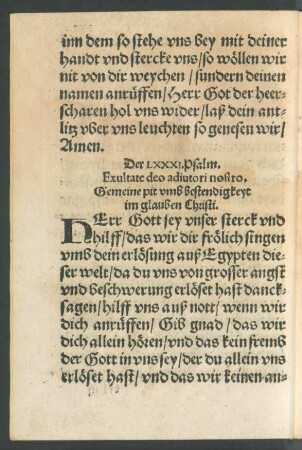 inn dem so stehe vns bey mit deiner
handt vnd stercke vns / so wöllen wir
nit von dir weychen / sundern deinen
namen anrüffen / Herr Got der heer-
scharen hol vns wider / laß dein ant-
litz vber vns leuchten so genesen wir /
Amen.
Der LXXXI. Psalm.
Exultate deo adiutori nostro.
Gemeine pit vmb bestendigkeyt
im glauben Christi.
HErr Gott sey vnser sterck vnd
hilff / das wir dir frölich singen
vmb dein erlösung auß Egypten die-
ser welt / da du vns von grosser angst
vnd beschwerung erlöset hast danck-
sagen / hilff vns auß nott / wenn wir
dich anrüffen / Gib gnad / das wir
dich allein hören / vnd das kein fremb
der Gott in vns sey / der du allein vns
erlöset hast / vnd das wir keinen an-